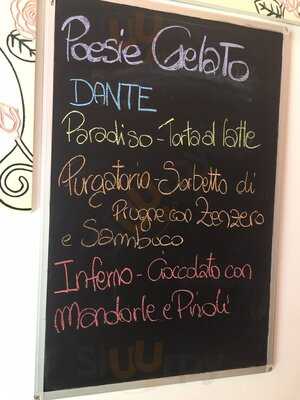 Poesie Gelato
DANTE
Paradiso - Torta al latte
Purgatorio - Sorbetto di
Prugne con Zenzero
e Sambuco
Inferno - Cioccolato con
Mandorle e Pinoli